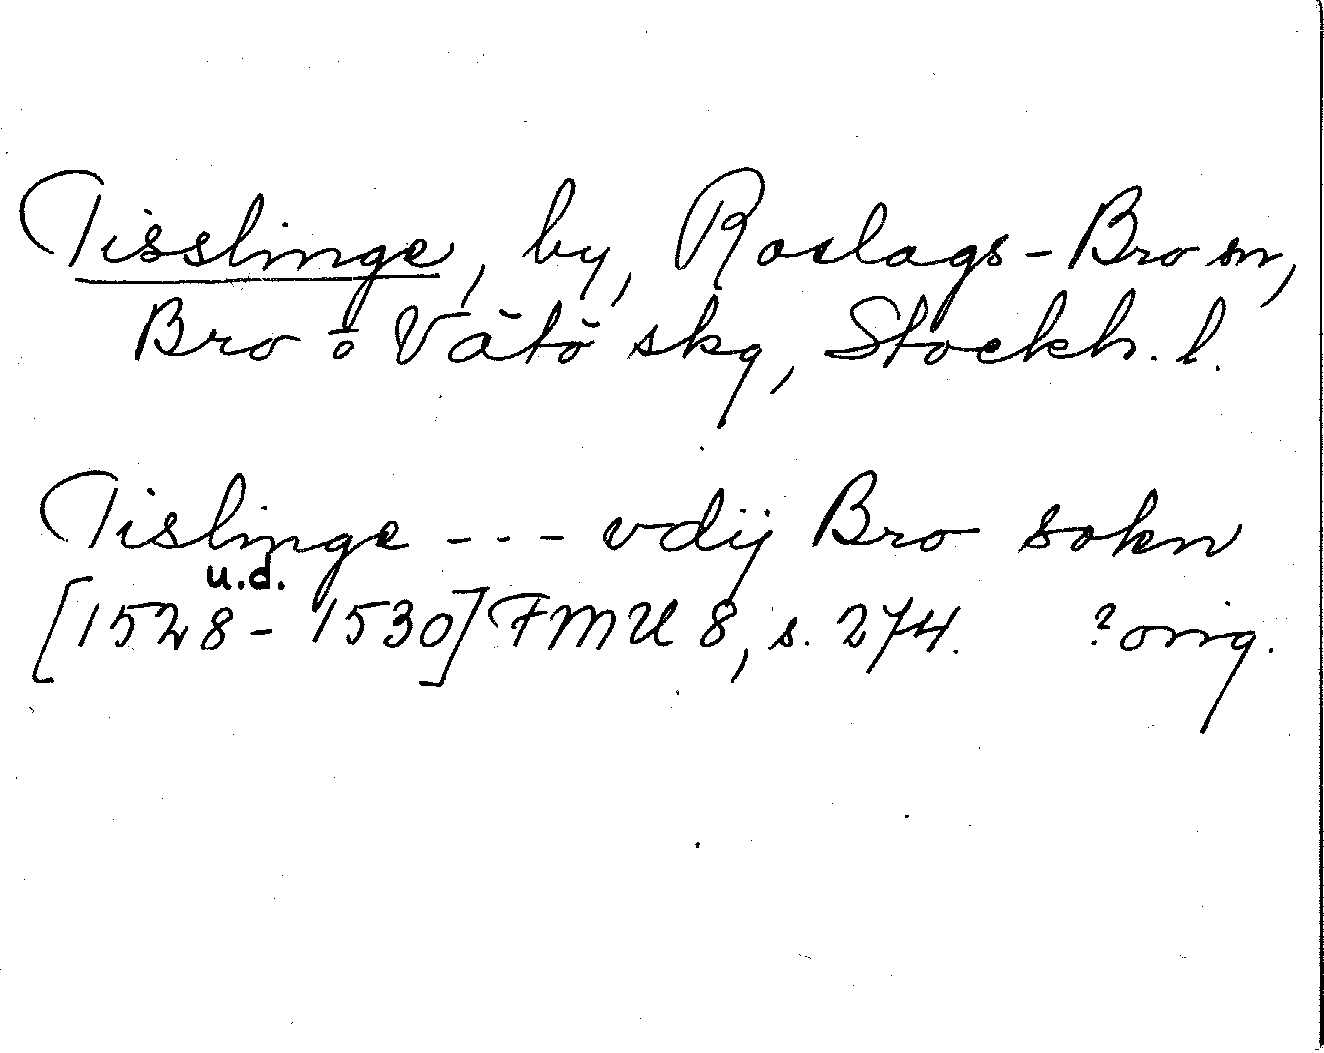 Tisslinge, by, Roslags-Bro sn,
Bro o Vätö skg, Stockh. l.
Tislinge --- vdij Bro sokn
u.d.
[1528-1530] FMU 8, s. 274. ? orig.